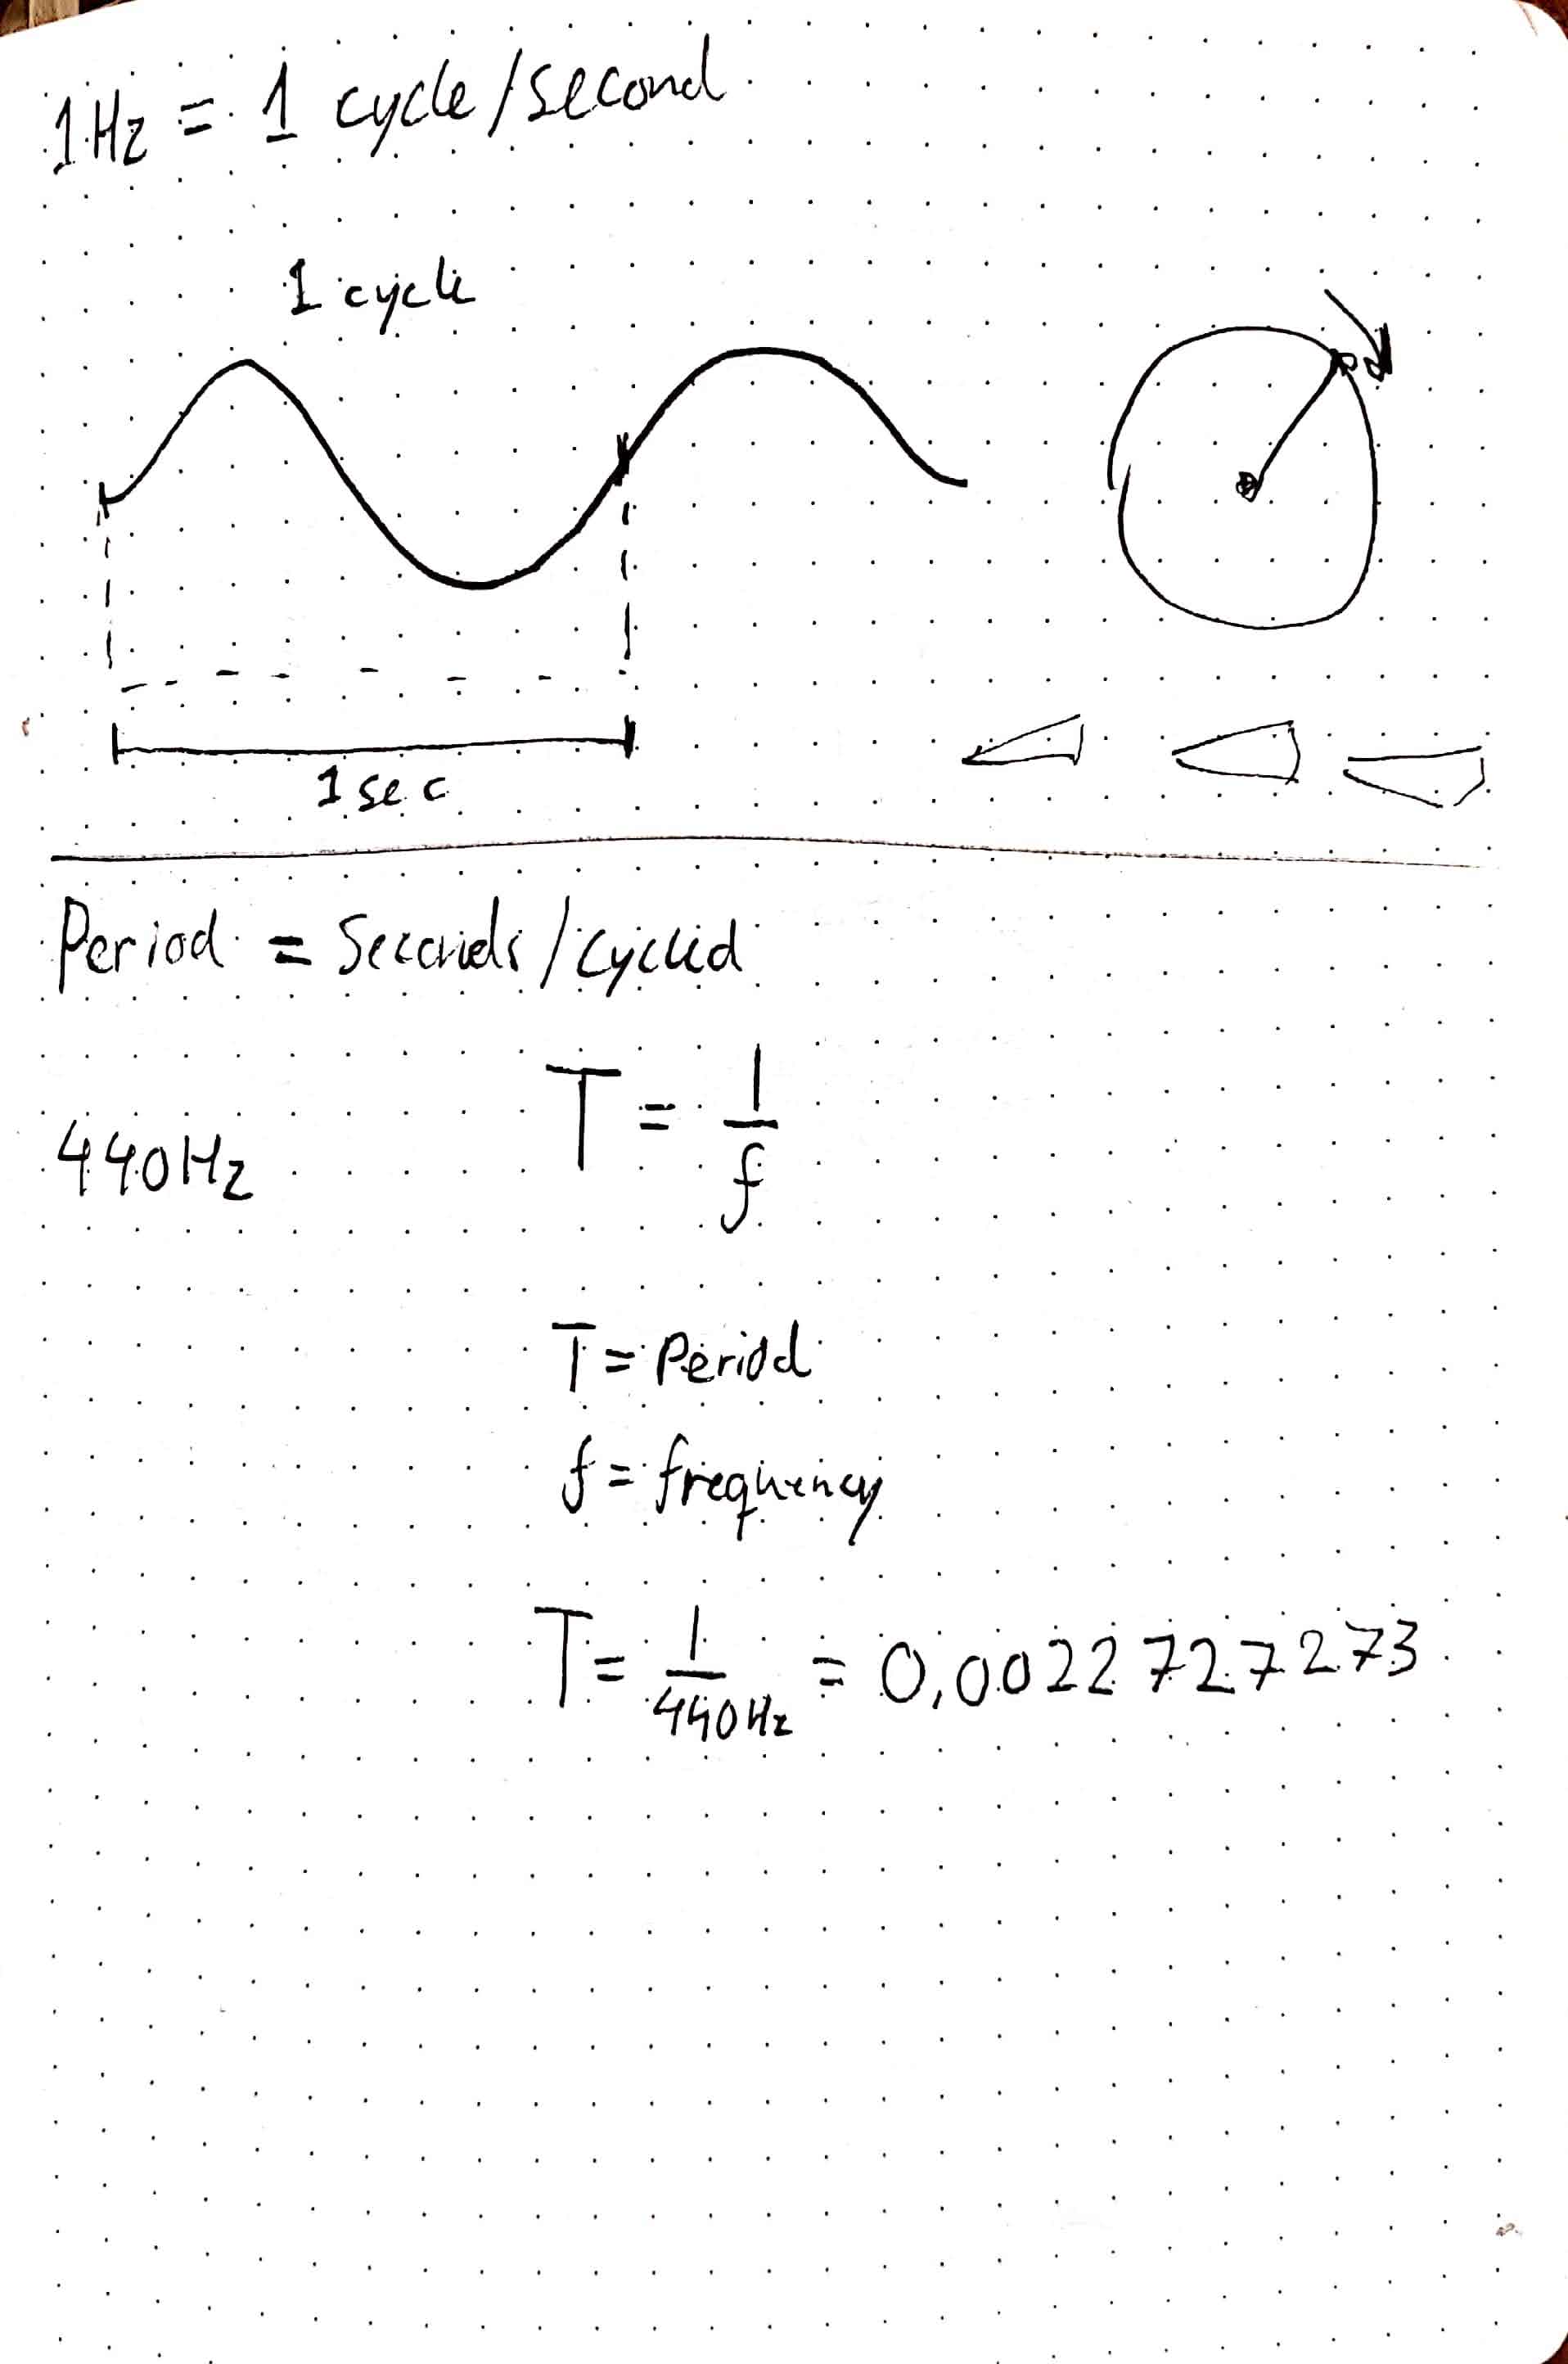 1Hz = 1 cycle/second
1 cycle
1 sec
Period = Seconds/cycled
T = 1/f
440Hz
T = Period
f = frequency
T = 1/440Hz = 0,00227727273